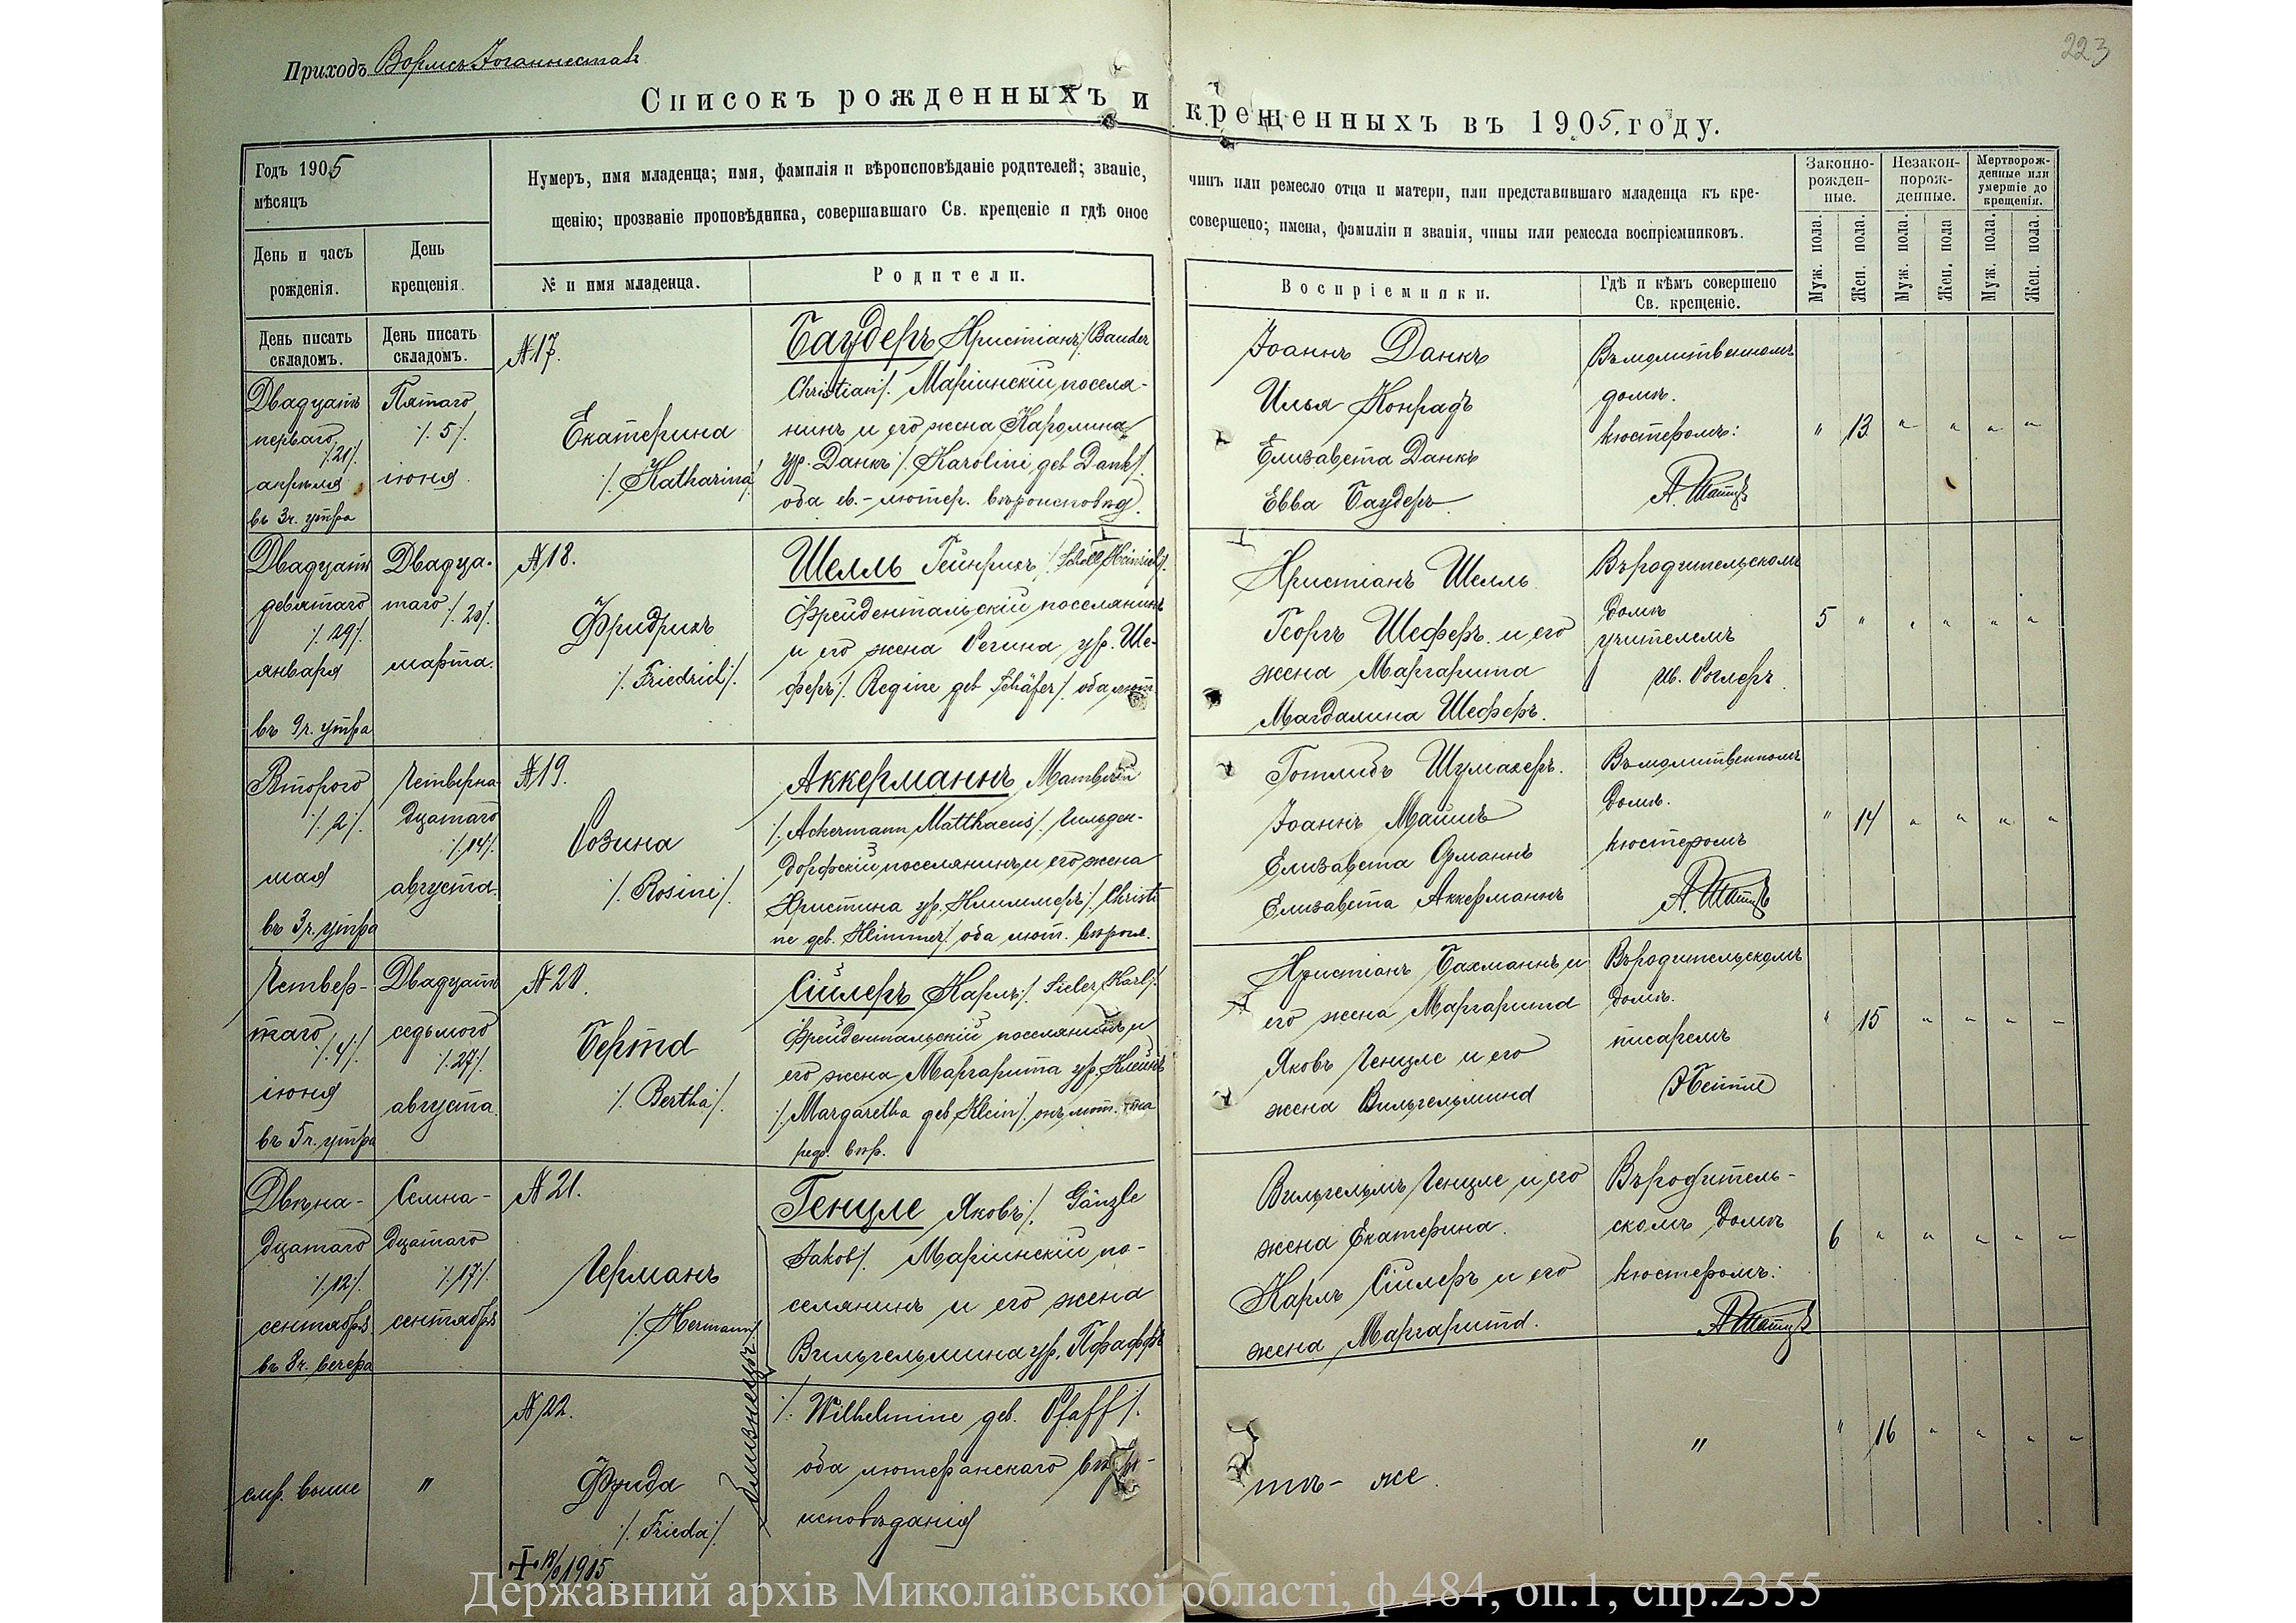 Приходъ Вормсъ Іоганнесталь
223
Списокъ рожденныхъ и крещенныхъ въ 1905 году.
Годъ 1905
мѣсяцъ
День и часъ
рожденія.
День
крещенія.
Нумеръ, имя младенца; имя, фамилія и вѣроисповѣданіе родителей; званіе, чинъ или ремесло отца и матери, или представившаго младенца къ кре-
щенію; прозваніе проповѣдника, совершавшаго Св. крещеніе и гдѣ оное совершено; имена, фамиліи и званія, чины или ремесла воспріемниковъ.
№ и имя младенца.
Родители.
Воспріемники.
Гдѣ и кѣмъ совершено
Св. крещеніе.
Законно-
рожден-
ные.
Незакон-
норож-
денные.
Мертворож-
денные или
умершіе до
крещенія.
Муж. пола.
Жен. пола.
Муж. пола.
Жен. пола
Муж. пола.
Жен. пола.
День писать
складомъ.
День писать
складомъ.
Двадцать
перваго
/.21/.
апрѣля
въ 3ч. утра
Пятаго
/. 5/.
іюня
№17.
Екатерина
/. Katharina/.
Баудеръ Христіанъ/. Bauder
Christian/. Маріинскій поселя-
нинъ и его жена Каролина
ур. Данкъ/. Karolini geb Dank/.
оба ев.-лютер. вѣроисповѣд.
Іоаннъ Данкъ
Илья Конрадъ
Елизавета Данкъ
Евва Баудеръ
Въ молитвенномъ
домѣ.
кюстеромъ:
" 13 " " " "
Двадцать
девятаго
/. 29/.
января
въ 9ч. утра
Двадца-
таго /. 20/.
марта.
№18.
Фридрихъ
/. Friedrich/.
Шелль Гейнрихъ /. Schell Heinrich/.
Фрейдентальскій поселянинъ
и его жена Регина ур. Ше-
феръ/. Regine geb Schäfer/. оба лют.
Христіанъ Шелль
Георгъ Шеферъ и его
жена Маргарита
Магдалина Шеферъ.
Въ родительскомъ
домѣ
учителемъ
5 " " " " "
Второго
/. 2/.
мая
въ 3ч. утра
Четверна-
дцатаго
/.14/.
августа.
№19.
Розина
/. Rosini/.
Аккерманнъ Матвей
/. Ackermann Matthaeus/. Гильден-
дорфскій поселянинъ и его жена
Христина ур. Климмеръ/. Christi
ne geb. Klimmer/. оба лют. вѣроис.
Готлибъ Шумахеръ.
Іоаннъ Майшъ
Елизавета Орманнъ
Елизавета Аккерманнъ
Въ молитвенномъ
домѣ.
кюстеромъ
" 14 " " " "
Четвер-
таго
/. 4/.
іюня
въ 5ч. утра
Двадцать
седьмого
/. 27/.
августа.
№20.
Берта
/. Bertha/.
Сійлеръ Карлъ/. Sieler Karl/.
Фрейдентальскій поселянинъ и
его жена Маргарита ур. Клейнъ
/. Margaretha geb Klein/. онъ лют. она
реф. вѣр.
Христіанъ Бахманнъ и
его жена Маргарита
Яковъ Генцле и его
жена Вильгельмина
Въ родительскомъ
домѣ.
писаремъ
" 15 " " " "
Двѣна-
дцатаго
/.12/.
сентября.
въ 8ч. вечера
Семна-
дцатаго
/.17/.
сентября
№21.
Германъ
/. Hermann/.
близнецы
Генцле Яковъ/. Gänzle
Jakob/. Маріинскій по-
селянинъ и его жена
Вильгельмина ур. Пфаффъ
Вильгельмъ Генцле и его
жена Екатерина.
Карлъ Сійлеръ и его
жена Маргарита.
Въ родитель-
скомъ домѣ
кюстеромъ:
6 " " " " "
смр. выше
"
№22.
Фрида
/. Frieda/.
/. Wilhelmine geb. Pfaff/.
оба лютеранскаго вѣро-
исповѣданія
тѣ-же.
"
" 16 " " " "
Державний архів Миколаївської області, ф.484, оп.1, спр.2355